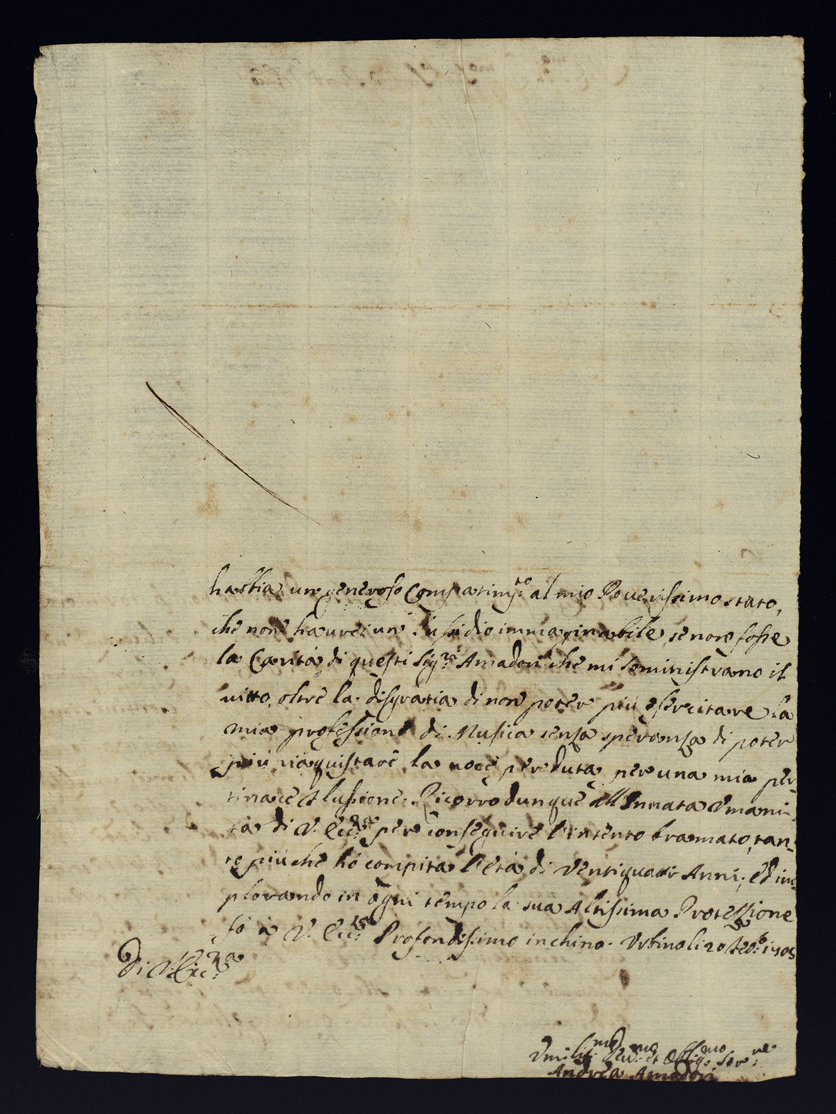 habbia un generoso Compatim.to al mio Poverissimo stato,
che non haurei un sussidio immaginabile, se non fosse
la Carità di questi Sig.ri Amadori che mi seministrano il
uitto, oltre la disgratia di non poter più esercitare la
mia professione di Musica senza speranza di poter
più riaquistare la uoce perduta per una mia per-
tinace flussione. Ricorro dunque all'Innata Vmani-
tà di V. Ecc.za per conseguire l'intento bramato, tan-
to più che hò compita l'età di Ventiquatr Anni, ed im-
plorando in ogni tempo la sua Altissima Protettione
fò à V. Ecc.za Profondissimo inchino. Urbino li 20
Di V. Ecc.za
Vmiliss.mo Deu.mo et Oblig.mo Ser.re
Andrea Amadori